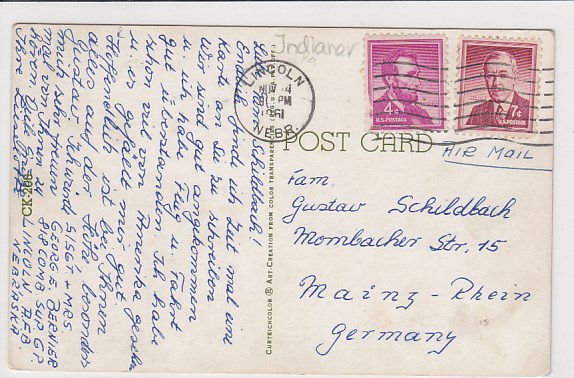 Indianer
LINCOLN
NOV 4
PM
1961
NEBR.
4¢
U.S. POSTAGE
7¢
U.S. POSTAGE
POST CARD
AIR MAIL
Fam.
Gustav Schildbach
Mombacher Str. 15
Mainz-Rhein
Germany
CURTEICHCOLOR ® ART-CREATION FROM COLOR TRANSPARENCY
CK-206
Schildbach!
Endlich find ich Zeit mal eine
Karte an Sie zu schreiben
Wir sind gut angekommen
u. übe Flug u. Fahrt
gut überstanden. Ich habe
schon viel von Amerika gesehn
u. es gefällt mir gut.
Hoffentlich ist bei Ihnen
alles auf der Höhe besonders
Gustav. Ich würde
mich sehr freuen
mal von Ihnen zu
hören. Viele
Ihre
S/SGT. & MRS
GEORGE BERNIER
818 COMB SUP GP
LINCOLN AFB
NEBRASKA